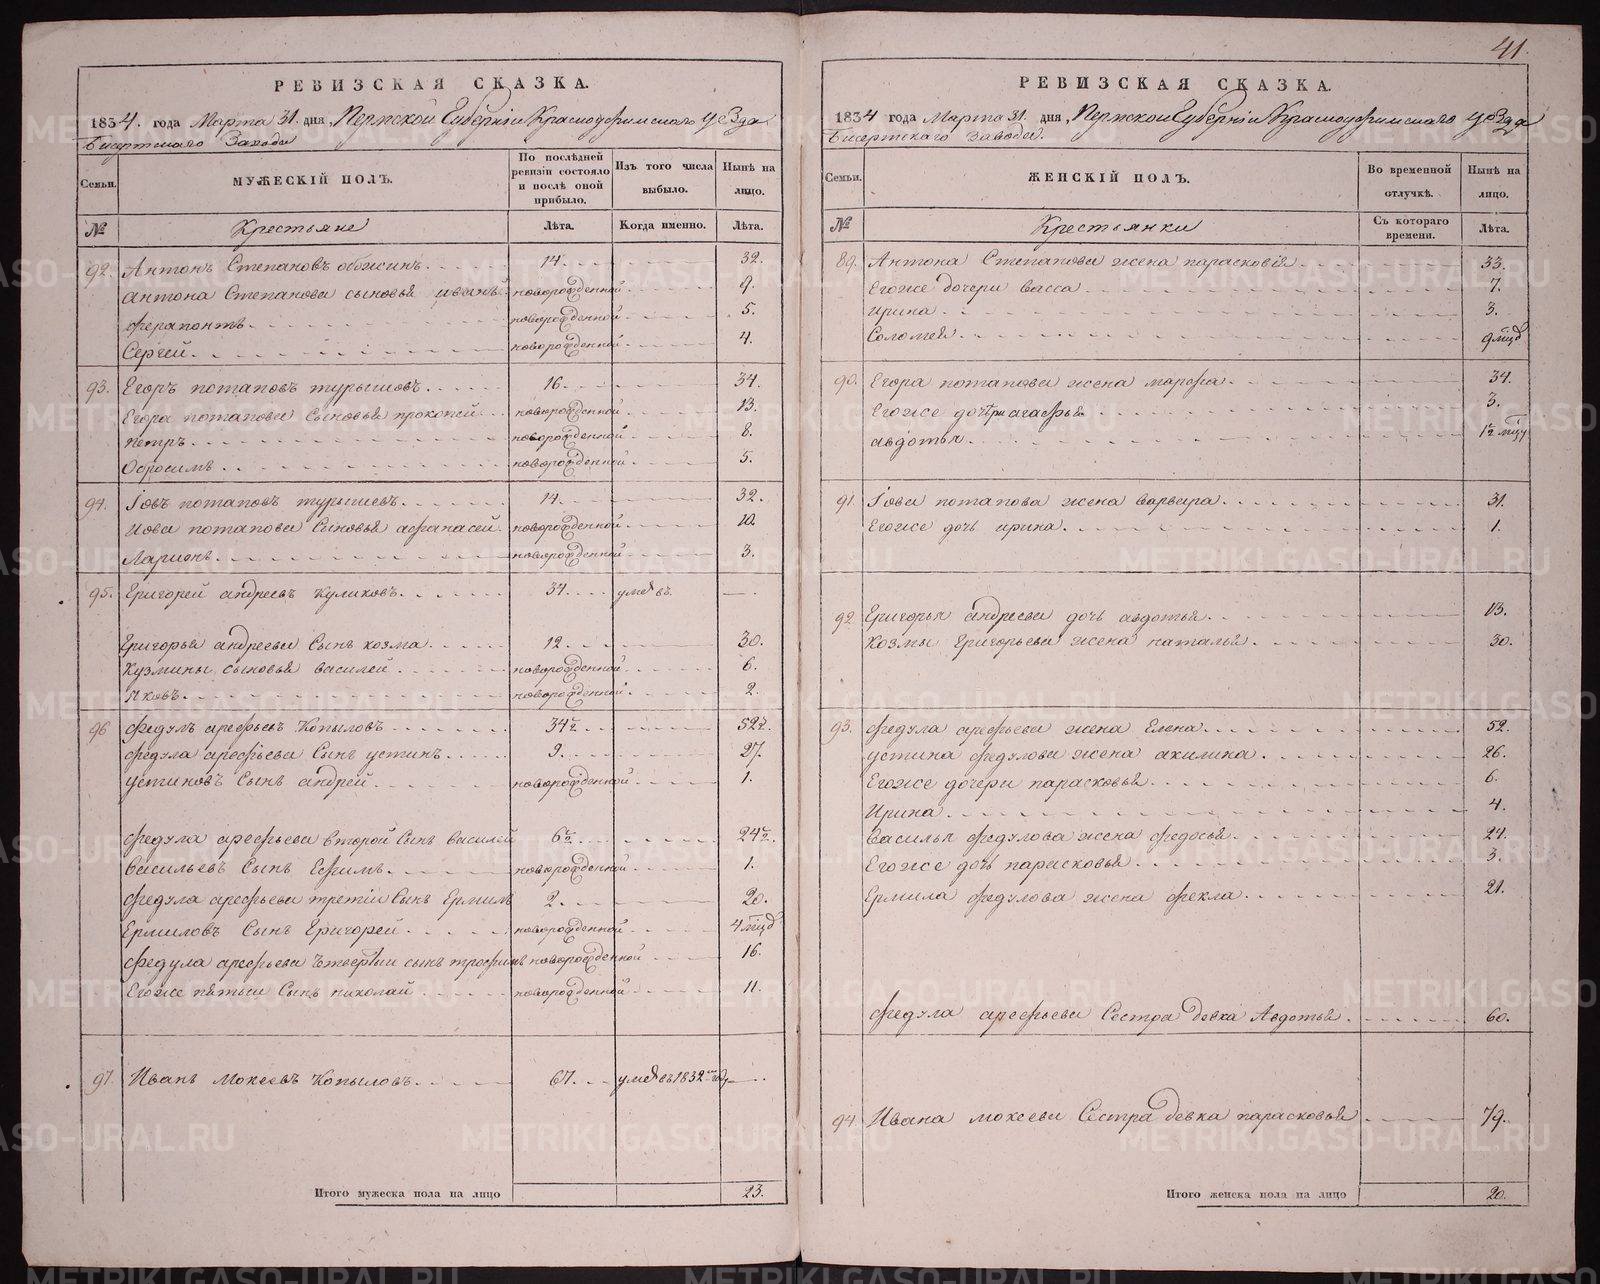 41.
РЕВИЗСКАЯ СКАЗКА.
1834. года Марта 31. дня, Пермской Губерніи Красноуфимскаго уезда
Бисертскаго Завода
Семьи. МУЖЕСКІЙ ПОЛЪ. По послѣдней ревизіи состояло и послѣ оной прибыло. Изъ того числа выбыло. Нынѣ на лицо.
№ Крестьяне Лѣта. Когда именно. Лѣта.
92. Антонъ Степановъ 14. 32.
Антона Степанова сыновья Иванъ новорожденной 9.
Ферапонтъ новорожденной 5.
Сергей новорожденной 4.
93. Егоръ Потаповъ Турышовъ 16. 34.
Егора Потапова Сыновья Прокопей новорожденной 13.
Петръ новорожденной 8.
новорожденной 5.
94. Іовъ Потаповъ Турышевъ 14. 32.
Иова Потапова Сыновья Афанасей новорожденной 10.
Ларионъ новорожденной 3.
95. Григорей Андреевъ Куликовъ 34. —
Григорья Андреева Сынъ Козма 12. 30.
Кузмины сыновья Василей новорожденной 6.
Яковъ новорожденной 2.
96 Федулъ Арефьевъ Копыловъ 34½ 52½
Федула Арефьева Сынъ Устинъ 9. 27.
Устиновъ Сынъ Андрей новорожденной 1.
Федула Арефьева второй Сынъ Василей 6½ 24½
Васильевъ Сынъ Ефимъ новорожденной 1.
Федула Арефьева третіи Сынъ Ермилъ 2. 20.
Ермиловъ Сынъ Григорей новорожденной 4 мцд
Федула Арефьева Четвертіи сынъ Трофимъ новорожденной 16.
Егоже пятыи Сынъ Николай новорожденной 11.
97. Иванъ Мокеевъ Копыловъ 67. 1832 —
Итого мужеска пола на лицо 23.
РЕВИЗСКАЯ СКАЗКА.
1834 года Марта 31. дня, Пермской Губерніи Красноуфимскаго уезда
Бисертскаго Завода.
Семьи. ЖЕНСКІЙ ПОЛЪ. Во временной отлучкѣ. Нынѣ на лицо.
№ Крестьянки Съ котораго времени. Лѣта.
89. Антона Степанова жена Парасковія 33.
Егоже дочери Васса 7.
Ирина 3.
Соломея 9 мцд
90. Егора Потапова жена Марфа 34.
Егоже дочери Агафья 3.
Авдотья 1½ мцу
91. Іова Потапова жена Варвара 31.
Егоже дочь Ирина 1.
92 Григорья Андреева дочь Авдотья 13.
Козмы Григорьева жена Наталья 30.
93. Федула Арефьева жена Елена 52.
Устина Федулова жена Акилина 26.
Егоже дочери Парасковья 6.
Ирина 4.
Василья Федулова жена Федосья 24.
Егоже дочь Парасковья 3.
Ермила Федулова жена Фекла 21.
Федула Арефьева Сестра девка Авдотья 60.
94. Ивана Мокеева Сестра девка Парасковья 79.
Итого женска пола на лицо 20.
METRIKI.GASO-URAL.RU